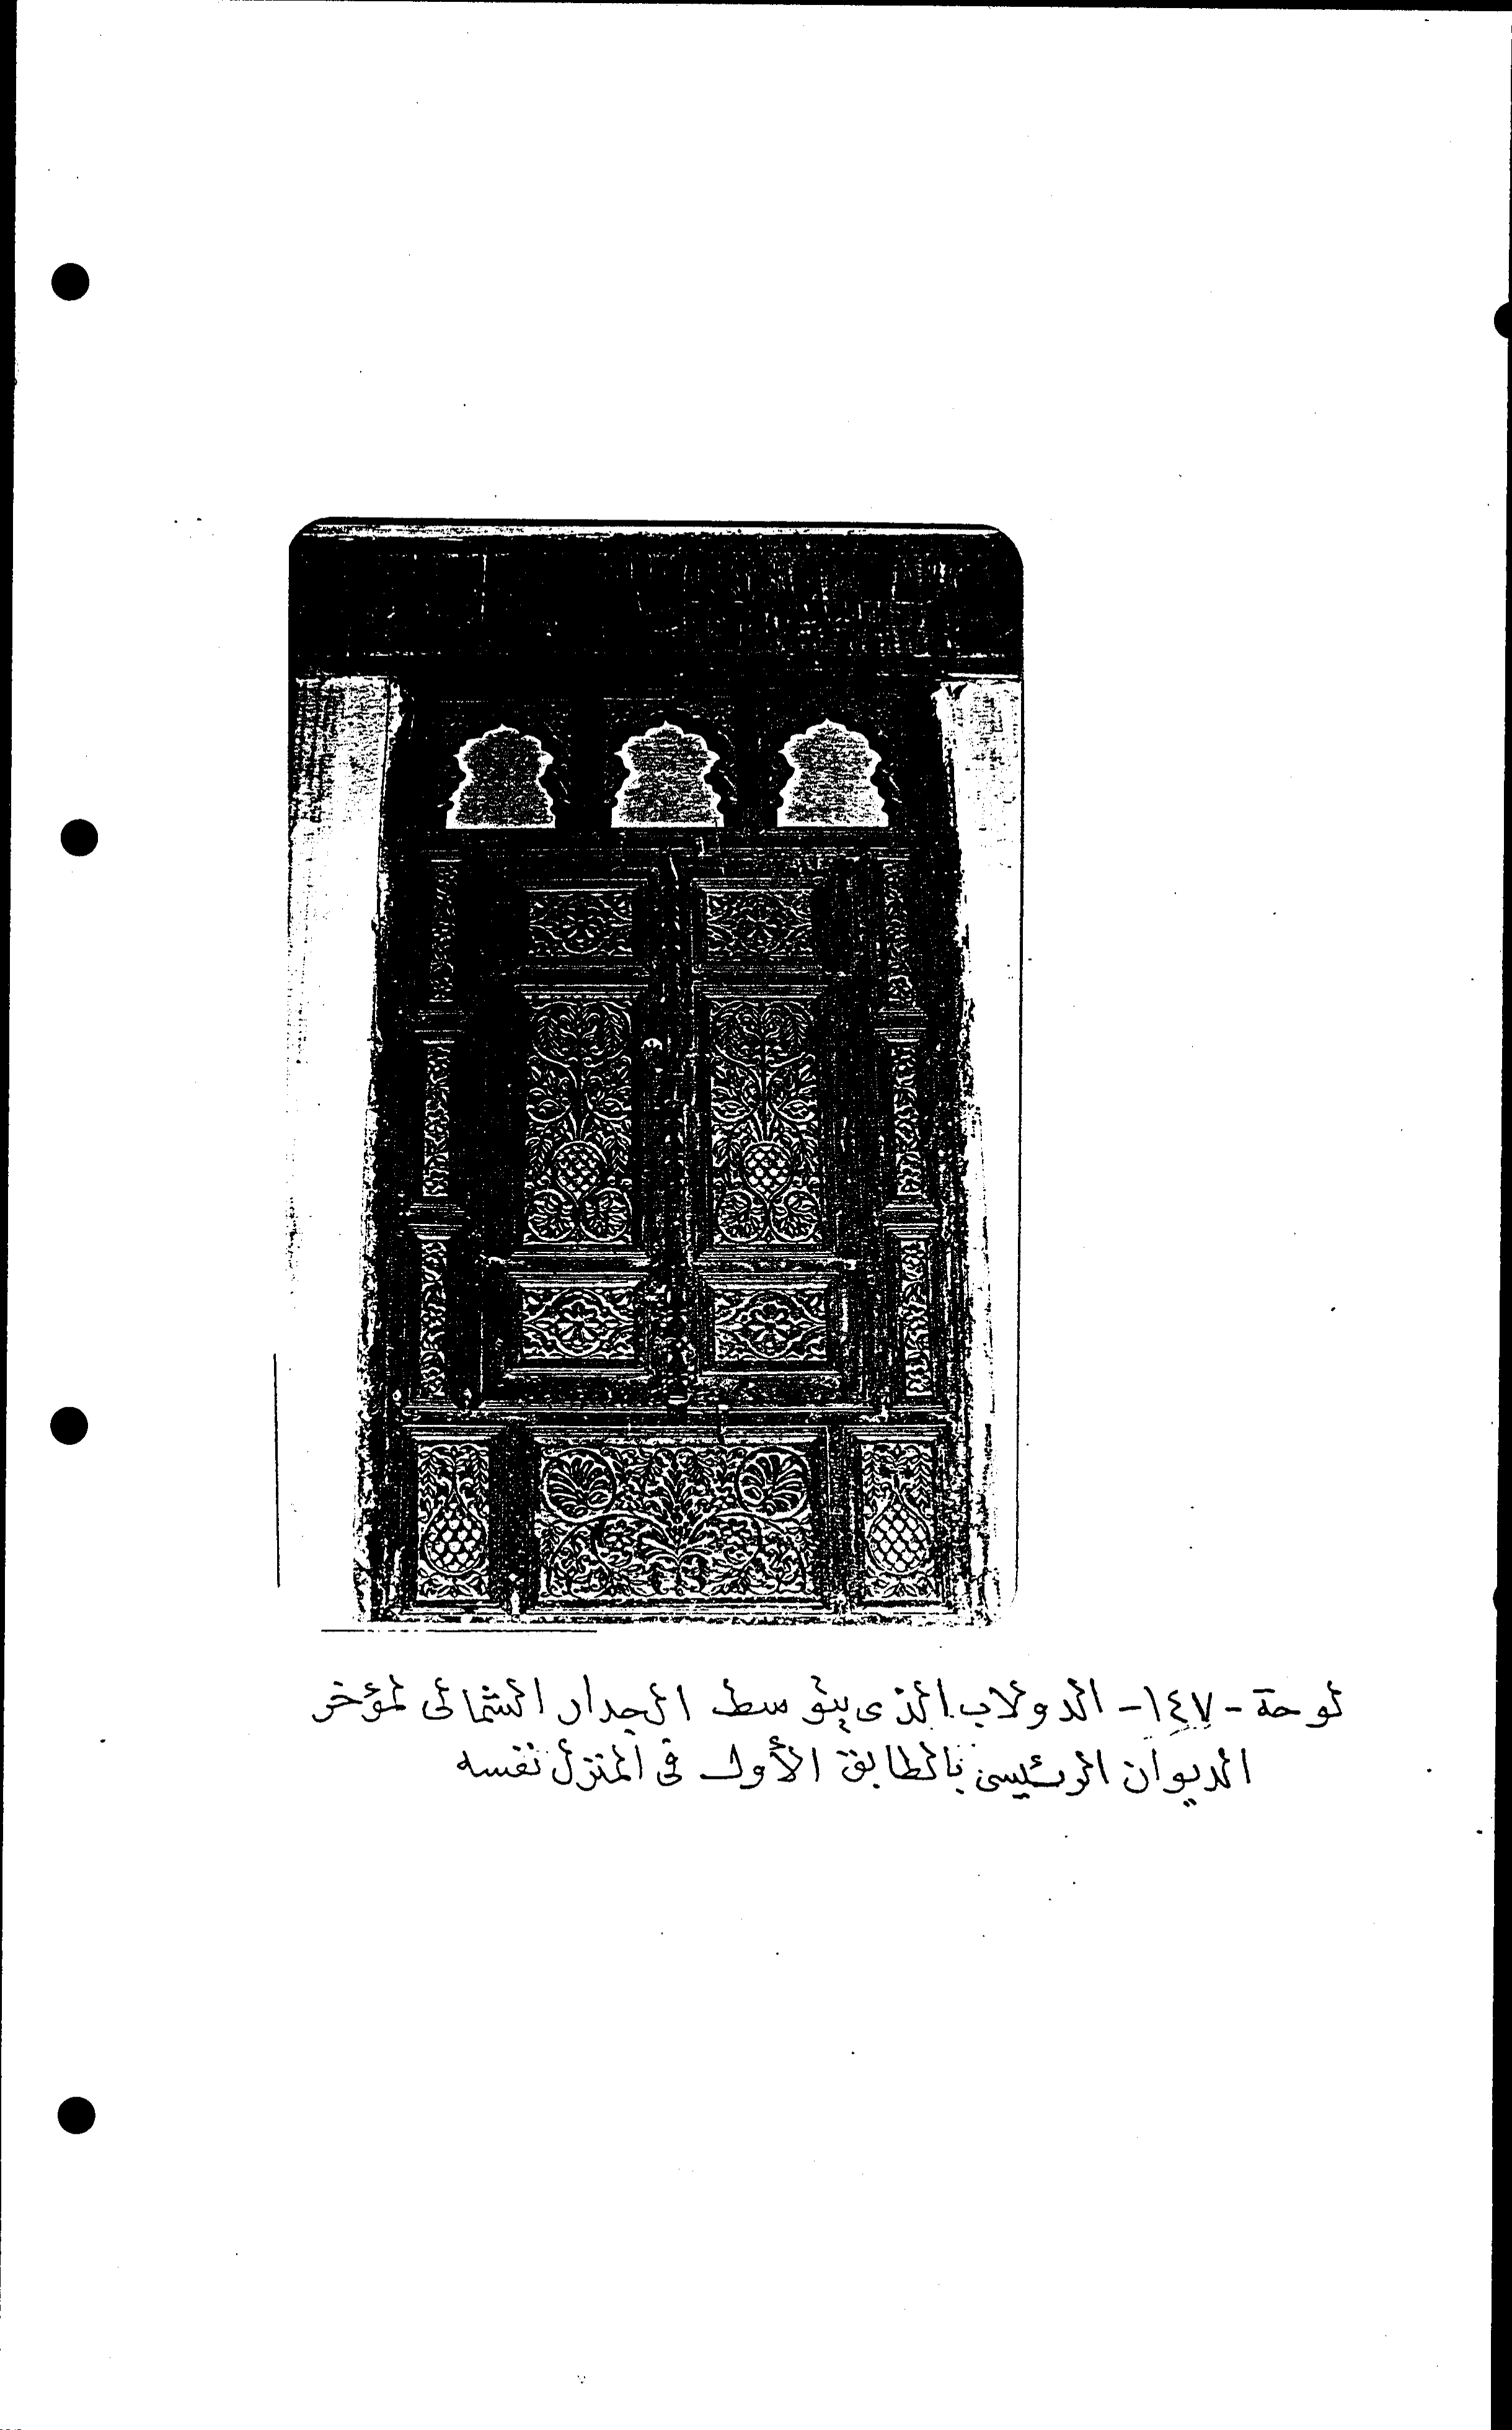 لوحة -١٤٧- الدولاب الذى يتوسط الجدار الشمالى لمؤخر
الديوان الرئيسى بالطابق الأول فى المنزل نفسه